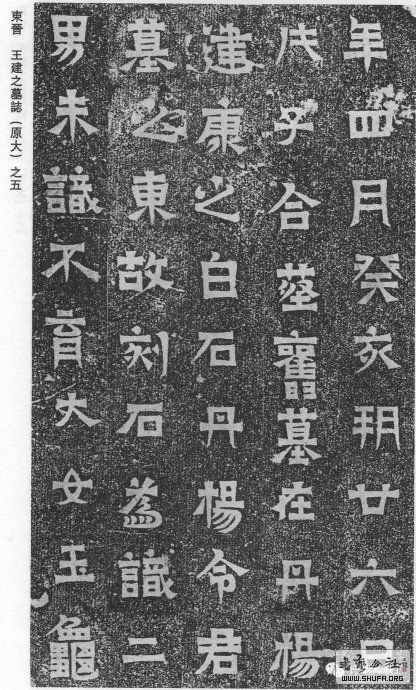 年四月癸亥朔廿六日
戊子合塟舊墓在丹楊
建康之白石丹楊令君
墓之東故刻石為識二
男未識不育大女玉龜
東晉 王建之墓誌（原大）之五
WWW.SHUFA.ORG